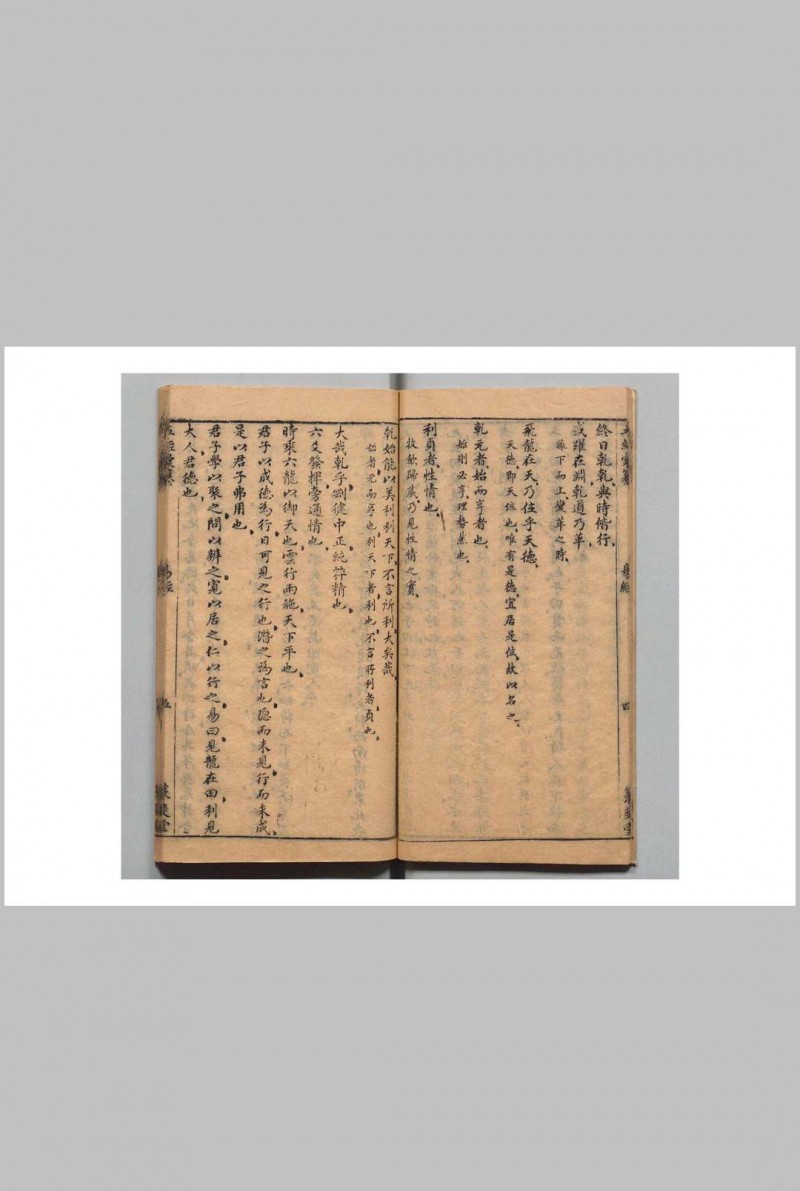 易經
四
終日乾乾與時偕行
或躍在淵乾道乃革
離下而上變革之時
飛龍在天乃位乎天德
天德即天位也唯有是德宜居是位故以名之
乾元者始而亨者也
始則必亨理勢然也
利貞者性情也
收斂歸藏乃見性情之實
乾始能以美利利天下不言所利大矣哉
始者元而亨也利天下者利也不言所利者貞也
大哉乾乎剛健中正純粹精也
六爻發揮旁通情也
時乘六龍以御天也雲行雨施天下平也
君子以成德為行日可見之行也潛之為言也隱而未見行而未成
是以君子弗用也
君子學以聚之問以辨之寬以居之仁以行之易曰見龍在田利見
大人君德也
易經
五